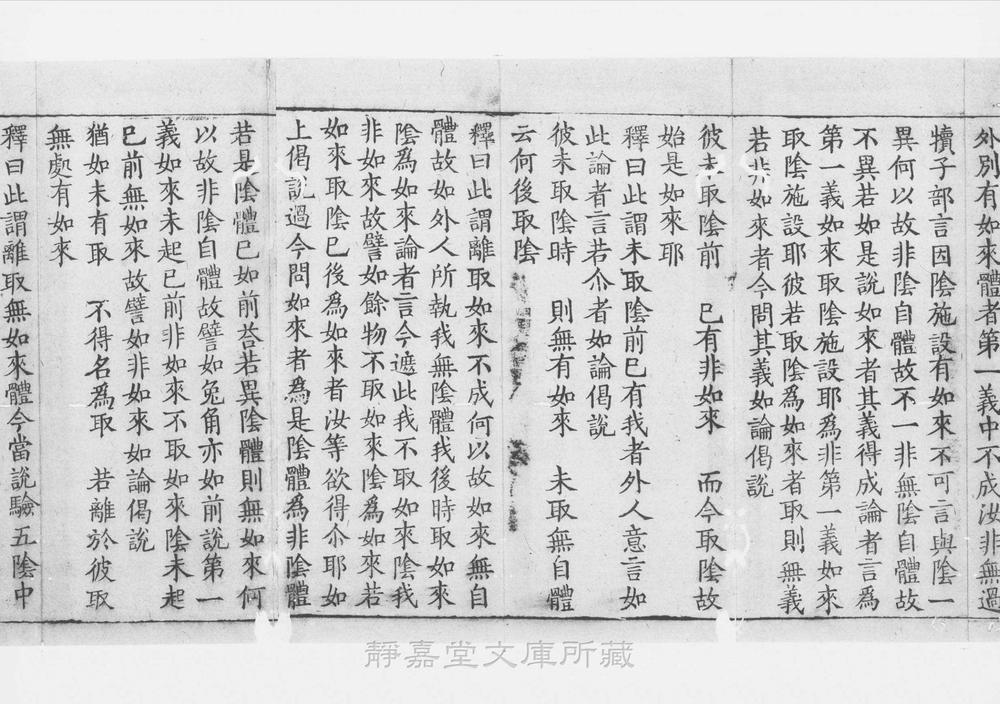 外別有如來體者第一義中不成汝非無過
犢子部言因陰施設有如來不可言與陰一
異何以故非陰自體故不一非無陰自體故
不異若如是說如來者其義得成論者言為
第一義如來取陰施設耶為非第一義如來
取陰施設耶彼若取陰為如來者取則無義
若非如來者今問其義如論偈說
彼未取陰前 已有非如來 而今取陰故
始是如來耶
釋曰此謂未取陰前已有我者外人意言如
此論者言若尒者如論偈說
彼未取陰時 則無有如來 未取無自體
云何後取陰
釋曰此謂離取如來不成何以故如來無自
體故如外人所執我無陰體我後時取如來
陰為如來論者言今遮此我不取如來陰我
非如來故譬如餘物不取如來陰為如來若
如來取陰已後為如來者汝等欲得尒耶如
上偈說過今問如來者為是陰體為非陰體
若是陰體已如前荅若異陰體則無如來何
以故非陰自體故譬如兔角亦如前說第一
義如來未起已前非如來不取如來陰未起
已前無如來故譬如非如來如論偈說
猶如未有取 不得名為取 若離於彼取
無處有如來
釋曰此謂離取無如來體今當說驗五陰中
靜嘉堂文庫所藏